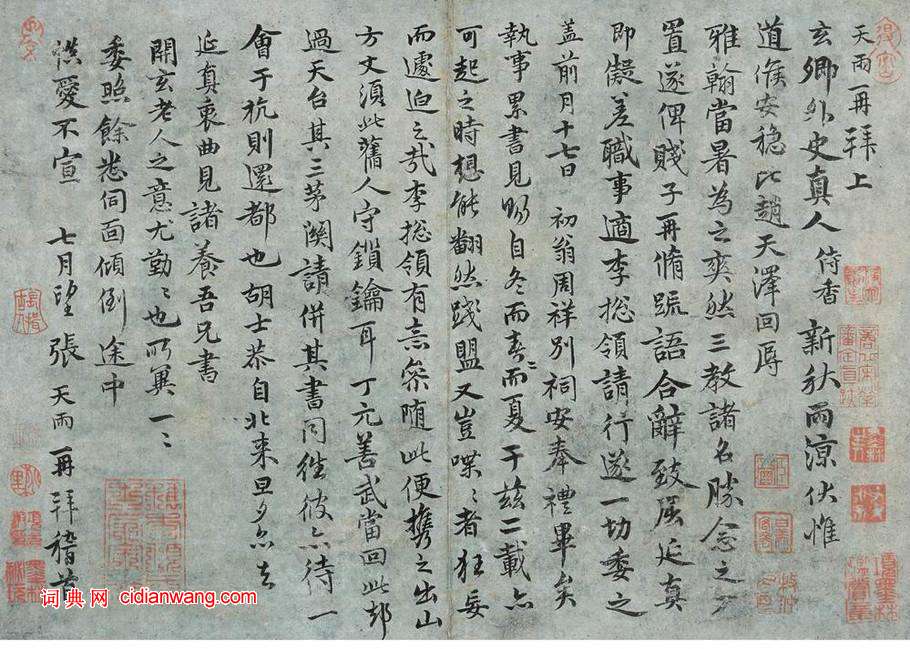 天雨再拜上
玄卿外史真人侍香新秋雨涼伏惟
道候安穩比趙天澤回辱
雅翰當暑為之爽然三教諸名勝念之
置遂俾賤子再脩疏語合辭致屈延真
即擬差職事適李捴領請行遂一切委之
蓋前月十七日初翁周祥別祠安奉禮畢矣
執事累書見賜自冬而春春而夏于茲二載亦
可起之時想能翻然踐盟又豈喋喋者狂妄
而遽迫之哉李捴領有意
隨此便携之出山
方丈須此舊人守鎖鑰耳丁元善武當回此却
過天台其三茅
請併其書同往彼亦待一
會于杭則還都也胡士恭自北來旦夕亦去
延真衷曲見諸養吾兄書
開玄老人之意尤勤勤也所冀一一
委照餘悉伺面傾倒途中
愛不宣七月望張天雨再拜稽首
词典网 cidianwang.com